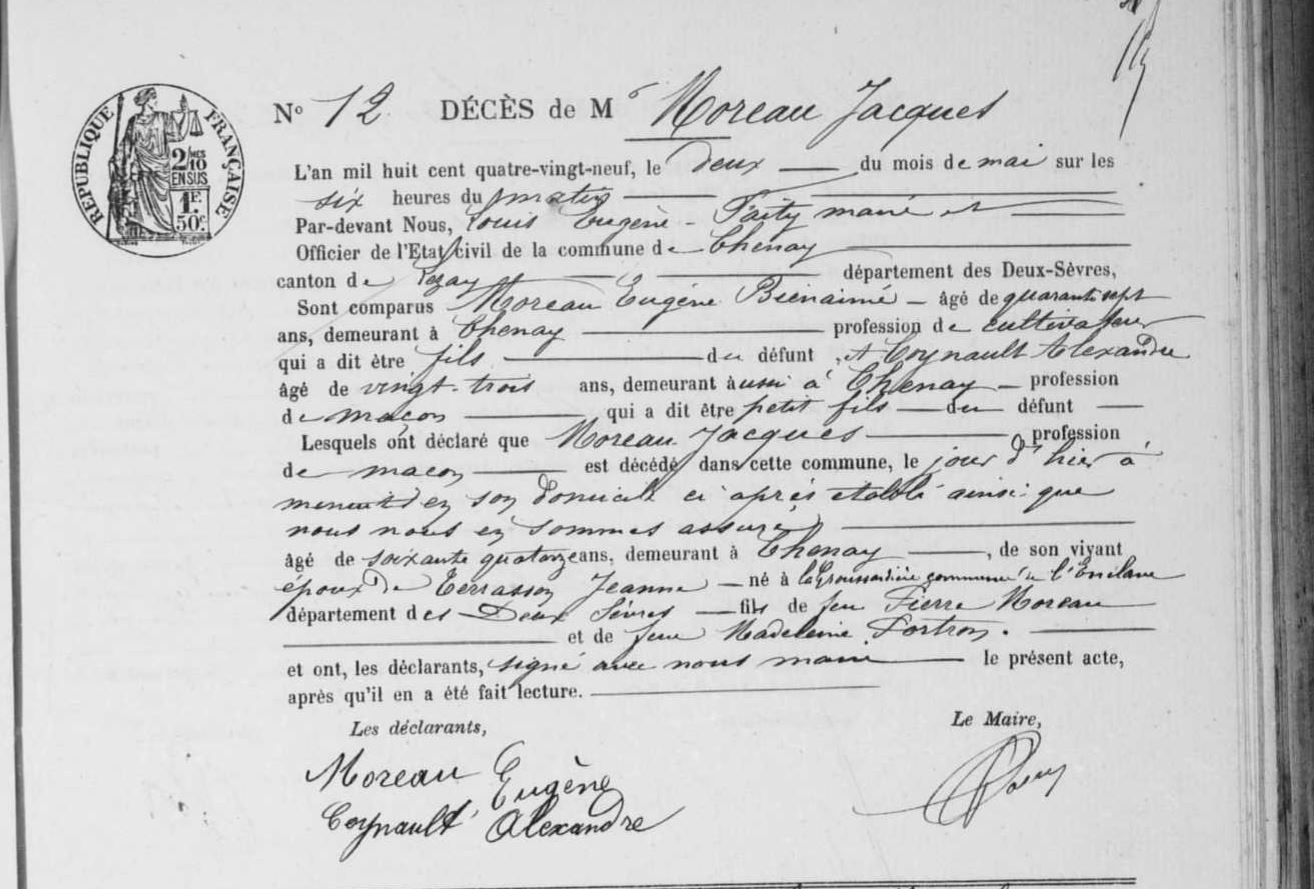 RÉPUBLIQUE FRANÇAISE
2/10 MES
EN SUS
1 F.
50 c.
No 12 DÉCÈS de Mr Moreau Jacques
L'an mil huit cent quatre-vingt-neuf, le deux du mois de mai sur les
six heures du matin
Par-devant Nous, Louis Eugène maire et
Officier de l'Etat civil de la commune de Chenay
canton de Lezay département des Deux-Sèvres,
Sont comparus Moreau Eugène Bienaimé - âgé de quarante sept
ans, demeurant à Chenay profession de cultivateur
qui a dit être fils du défunt, et Coynault Alexandre
âgé de vingt-trois ans, demeurant aussi à Chenay - profession
de maçon qui a dit être petit fils du défunt
Lesquels ont déclaré que Moreau Jacques profession
de maçon est décédé dans cette commune, le jour d'hier à
minuit en son domicile ci après établi ainsi que
nous nous en sommes assuré,
âgé de soixante quatorze ans, demeurant à Chenay, de son vivant
époux de Terrasson Jeanne - né à commune de l'Enclave
département des Deux Sèvres - fils de feu Pierre Moreau
et de feue Madeleine Fortron.
et ont, les déclarants, signé avec nous maire le présent acte,
après qu'il en a été fait lecture.
Les déclarants, Le Maire,
Moreau Eugène
Coynault Alexandre